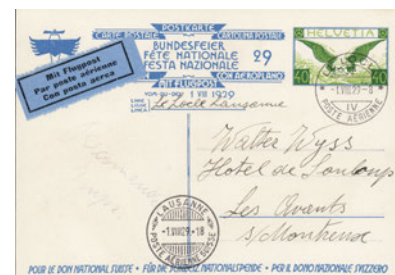 POSTKARTE
CARTE POSTALE CARTOLINA POSTALE
BUNDESFEIER
FÊTE NATIONALE
FESTA NAZIONALE
29
MIT FLUGPOST
CON AEROPLANO
VON-DU-DEL 1 VIII 1929
LINIE
LIGNE
LINEA
Le Locle Lausanne
Mit Flugpost
Par poste aérienne
Con posta aerea
HELVETIA
40 40
-1.VIII.29-8
IV
POSTE AÉRIENNE
Walter Wyss
Hotel de Sonloup
Les Avants
s/Montreux
LAUSANNE
-1.VIII.29-18
POSTE AÉRIENNE SUISSE
POUR LE DON NATIONAL SUISSE • FÜR DIE SCHWEIZ. NATIONALSPENDE • PER IL DONO NAZIONALE SVIZZERO